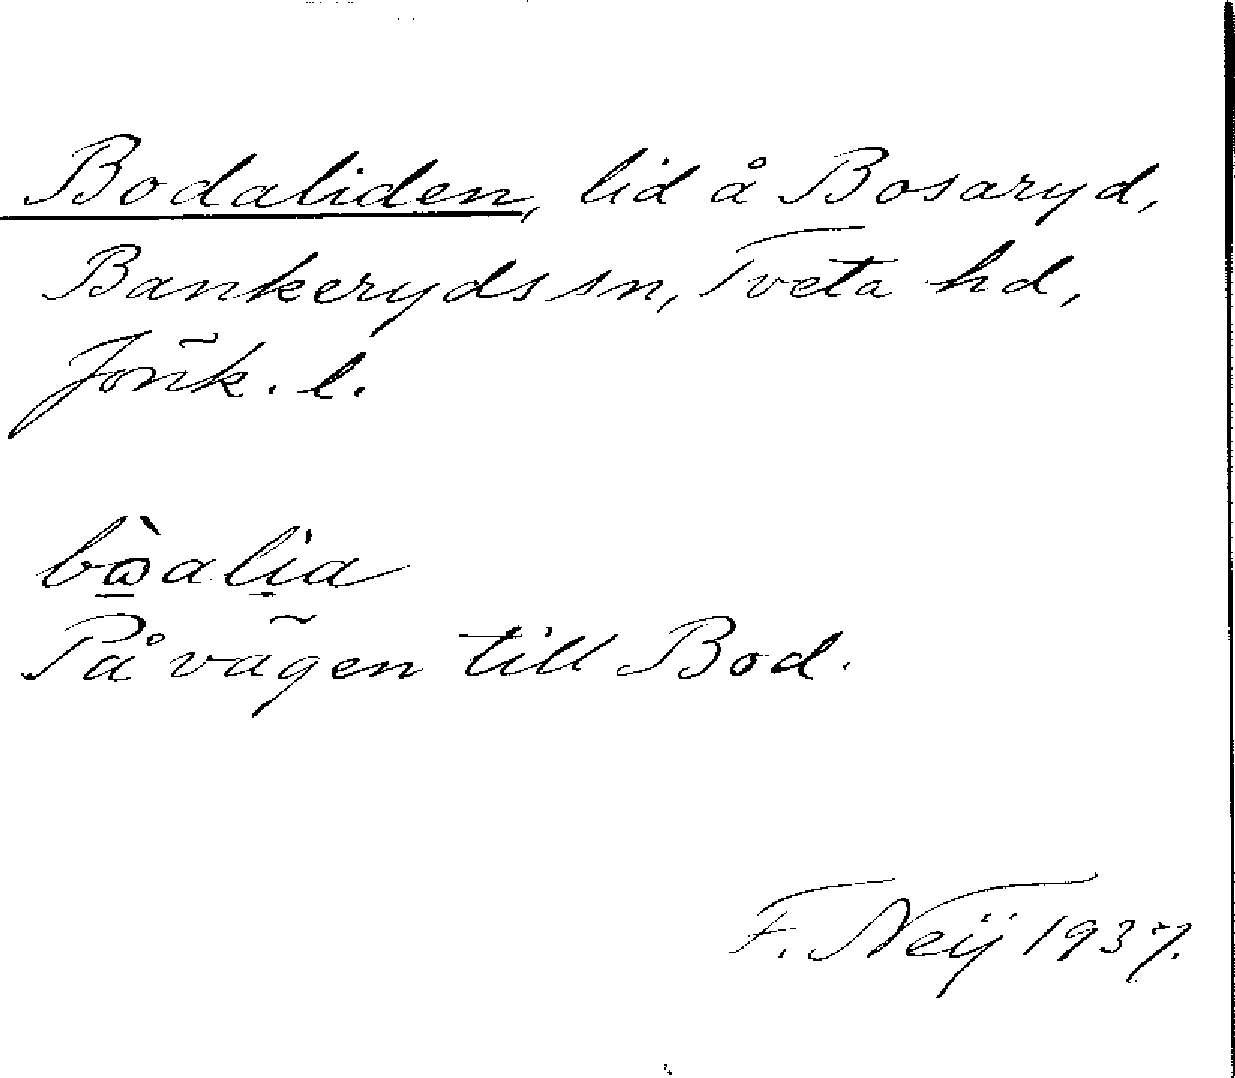 Bodaliden, lid å Bosaryd,
Bankeryds sn, Tveta hd,
Jönk. l.
På vägen till Bod.
F. Neij 1937.